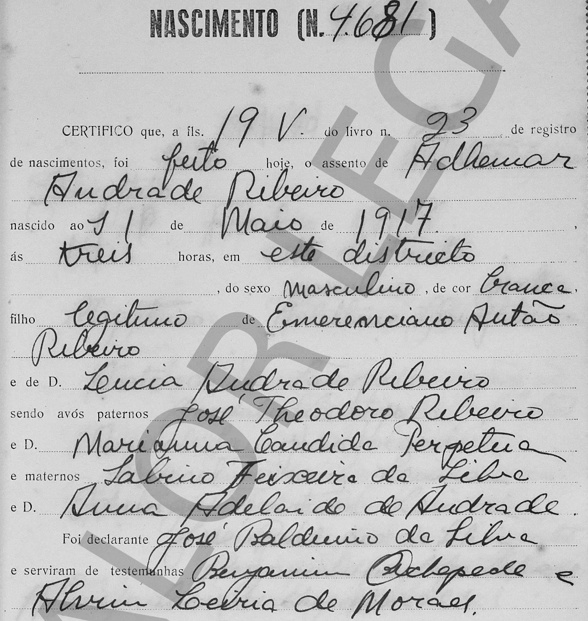 NASCIMENTO (N. 4.681)
CERTIFICO que, a fls. 19 V. do livro n. 23 de registro
de nascimentos, foi feito hoje, o assento de Adhemar
Andrade Ribeiro
nascido ao 11 de Maio de 1917.
ás treis horas, em este districto
, do sexo masculino, de cor branca,
filho legitimo de Emerenciano Antão
Ribeiro
e de D. Lucia Andrade Ribeiro
sendo avós paternos José Theodoro Ribeiro
e D. Marianna Candida Perpetua
e maternos Sabino Teixeira da Silva
e D. Anna Adelaide de Andrade.
Foi declarante José Balduino da Silva
e serviram de testemunhas Benjamin e
Alvim de Moraes.
VALOR LEGA